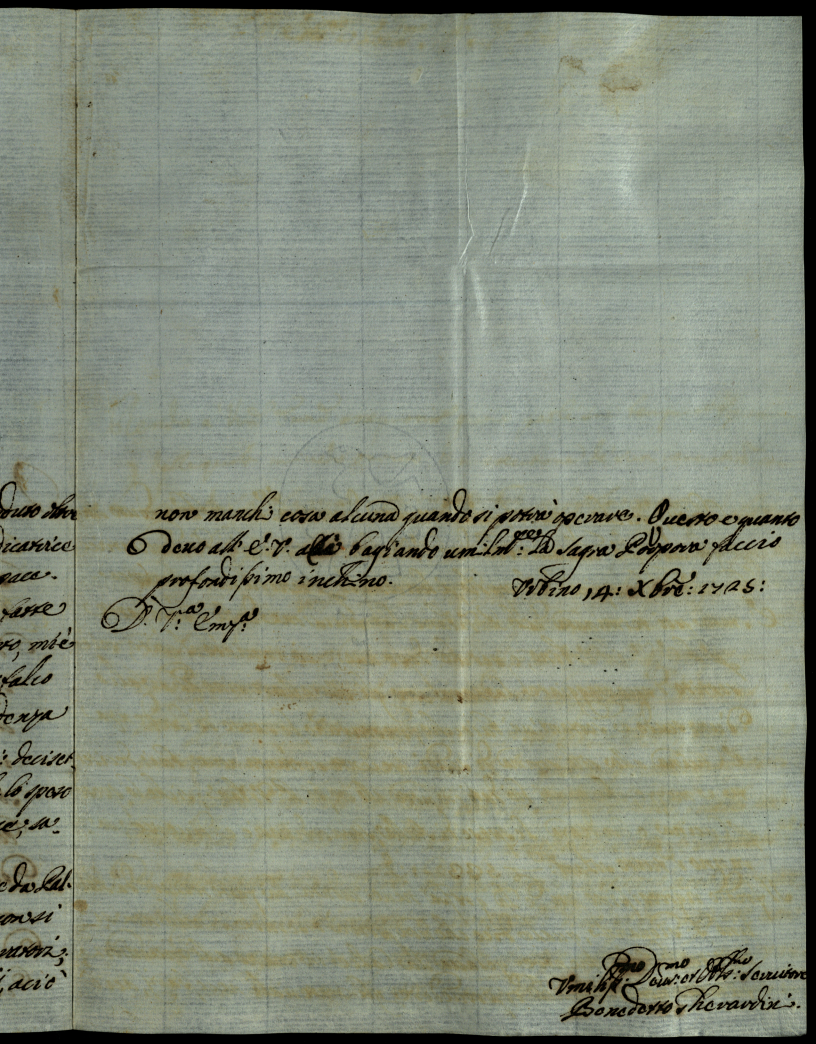 duto oltre
dicatrice
pace.
farse
ro, mi è
falco
denza
: deciset
lo speso
ce, sa-
e da Pal-
con si
, aciò
non manchi cosa alcuna quando si potrà operare. Questo e quanto
devo all' E. V. alla bagiando umil.te la Sagra Porpora faccio
profondissimo inchino. Urbino 14: Xbre: 1725:
D. V.a Emza
Umiliss.mo Dev.mo et Obb.mo Servitore
Benedetto Gherardini.